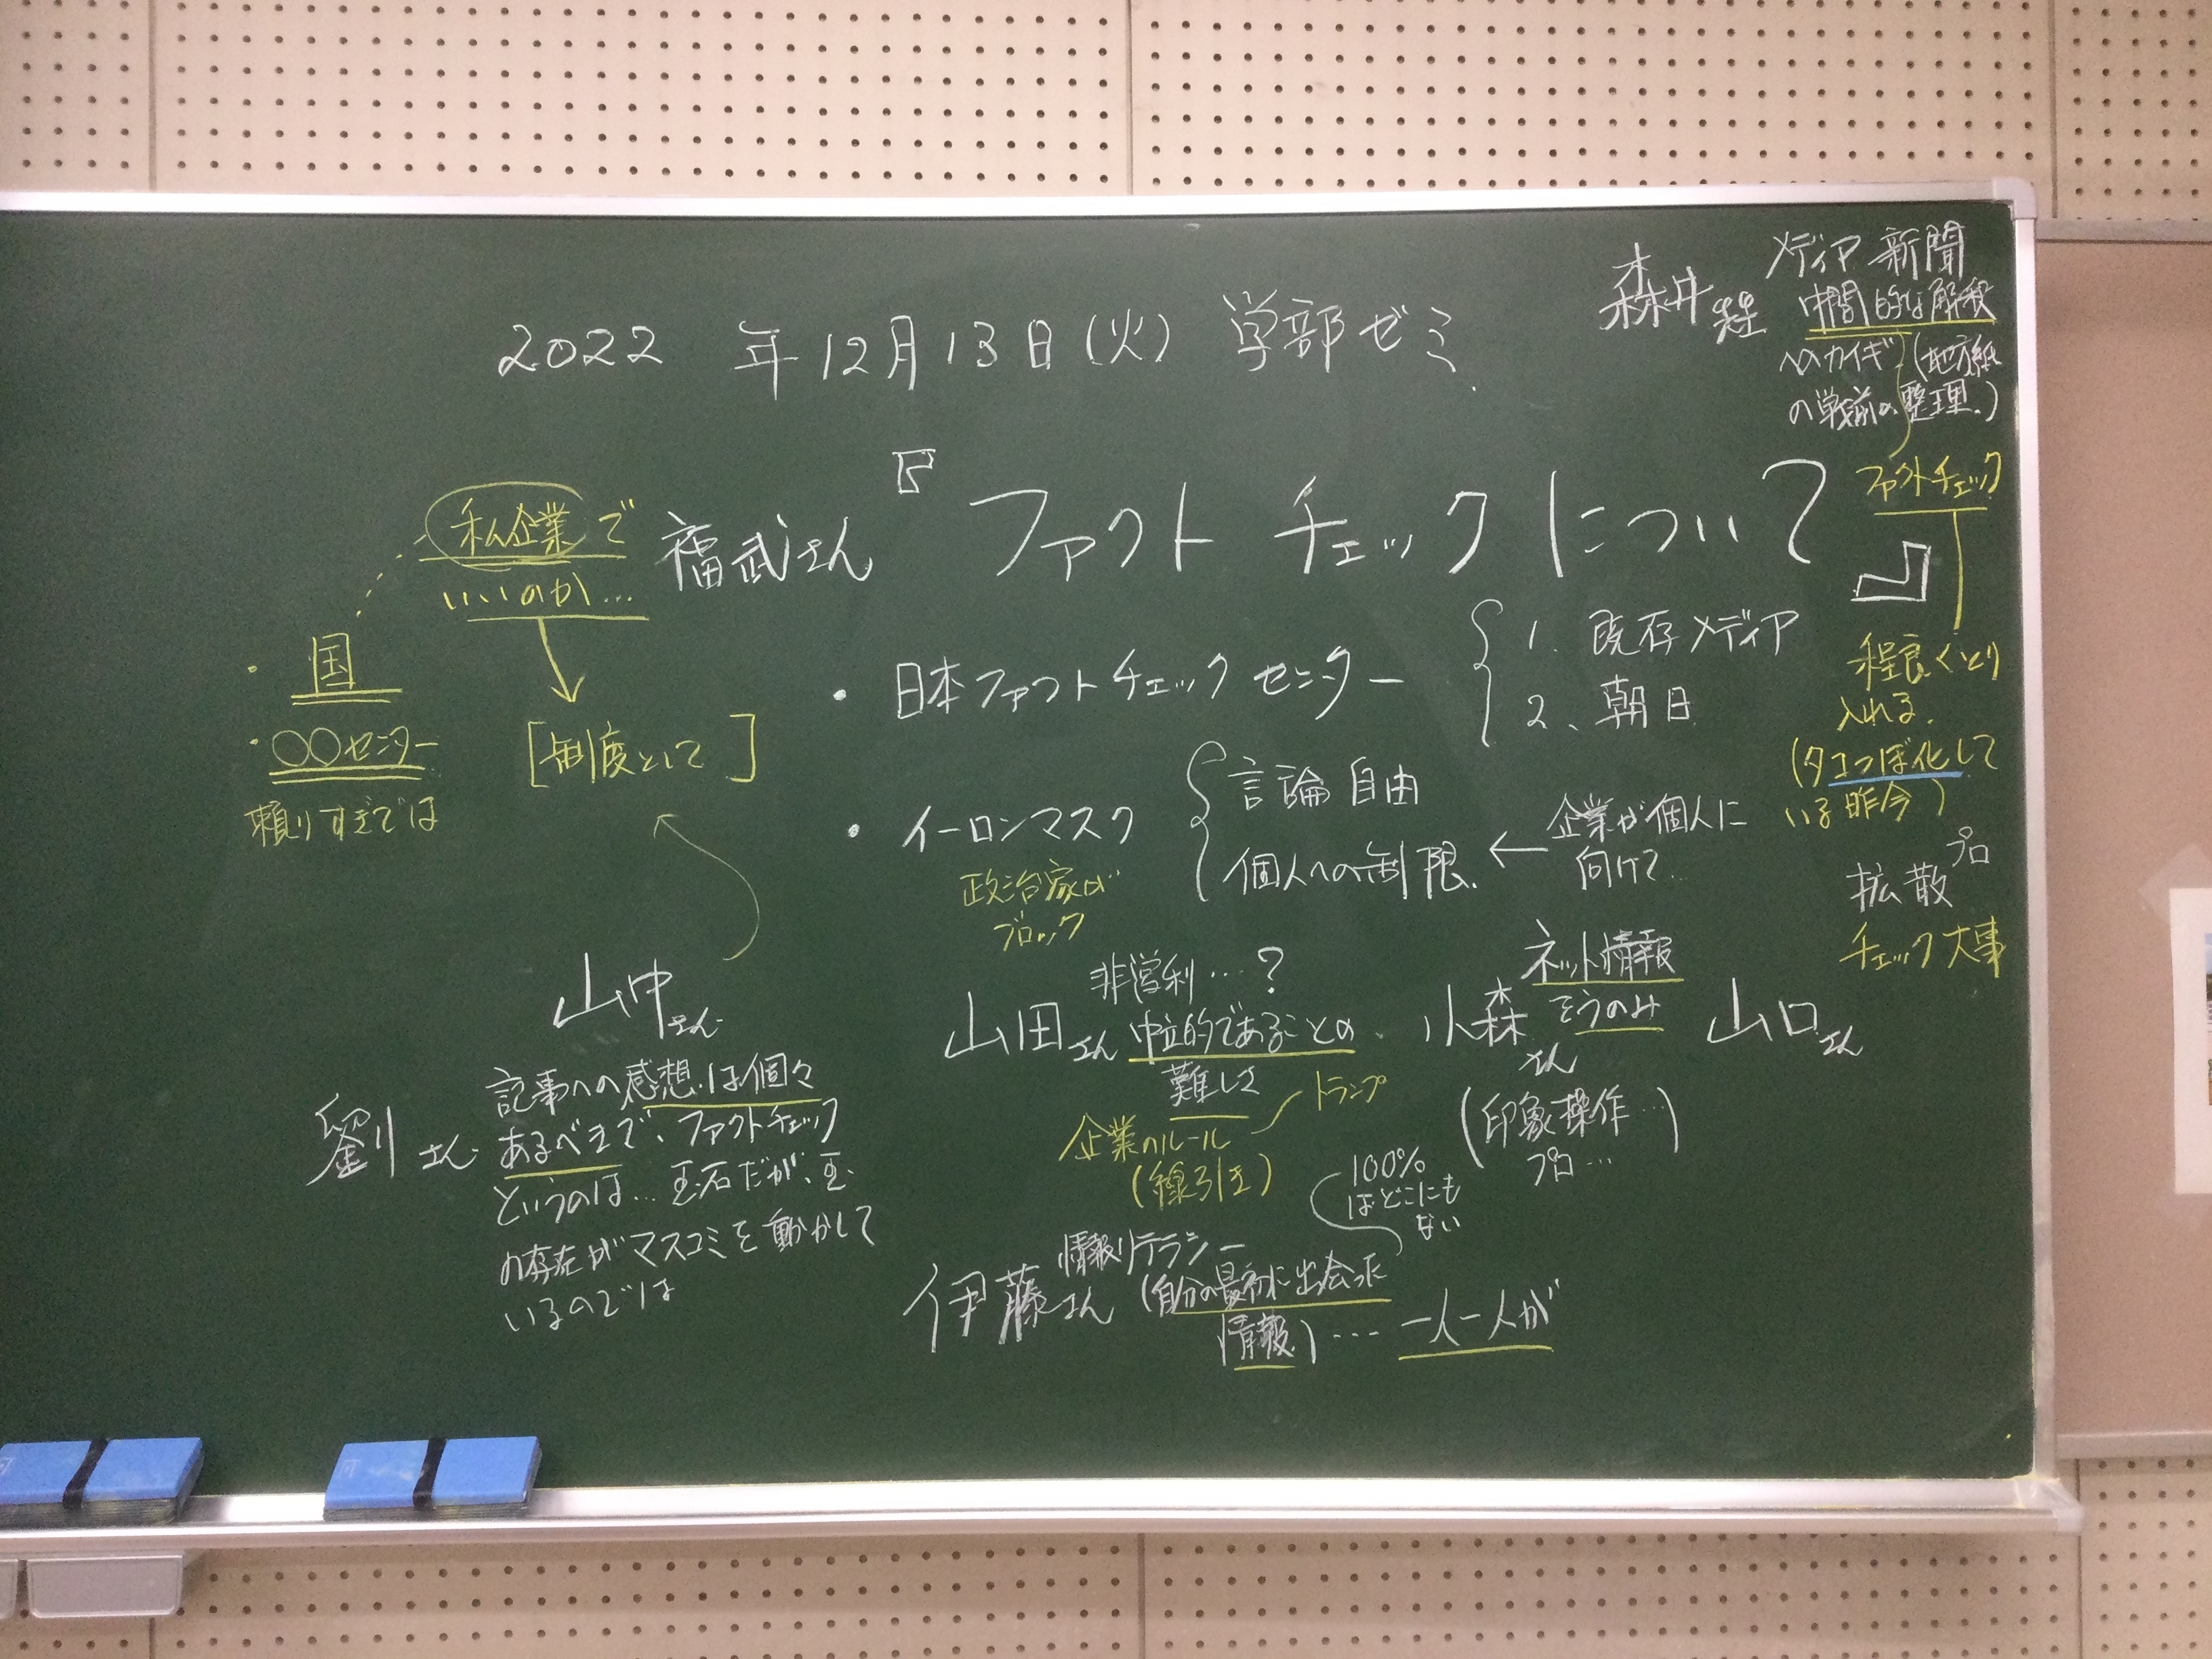 2022 年12月13日(火) 学部ゼミ
森井先生
メディア 新聞
中間的な解釈
へのカイギ (地方紙
の戦前の整理.)
ファクトチェック
程良くとり
入れる.
(タコつぼ化して
いる昨今)
拡散プロ
チェック大事
福武さん
『ファクトチェックについて』
私企業で
いいのか…
・国
・○○センター
頼りすぎでは
[制度として]
・日本ファクトチェックセンター
1. 既存メディア
2、朝日
・イーロンマスク
言論 自由
個人への制限. ← 企業が個人に
向けて…
政治家が
ブロック
山中さん
劉さん
記事への感想は個々
あるべきで、ファクトチェック
というのは… 玉石だが、玉
の存在がマスコミを動かして
いるのでは
山田さん
非営利…?
中立的であることの
難しさ
トランプ
企業のルール
(線引き)
小森さん
ネット情報
そうのみ
(印象操作…)
プロ…
山口さん
伊藤さん
情報リテラシー
(自分の最初に出会った
情報.)…. 一人一人が
100%
はどこにも
ない